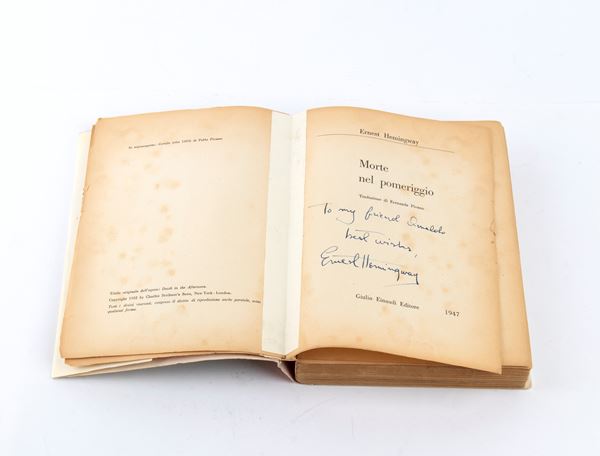 In sopraccoperta: disegno (olio 1923) di Pablo Picasso
Titolo originale dell'opera: Death in the Afternoon.
Copyright 1932 by Charles Scribner's Sons, New York - London.
Tutti i diritti riservati, compreso il diritto di riproduzione anche parziale, sotto
qualsiasi forma.
Ernest Hemingway
Morte
nel pomeriggio
Traduzione di Fernanda Pivano
To my friend Arnaldo
best wishes,
Ernest Hemingway
Giulio Einaudi Editore
1947